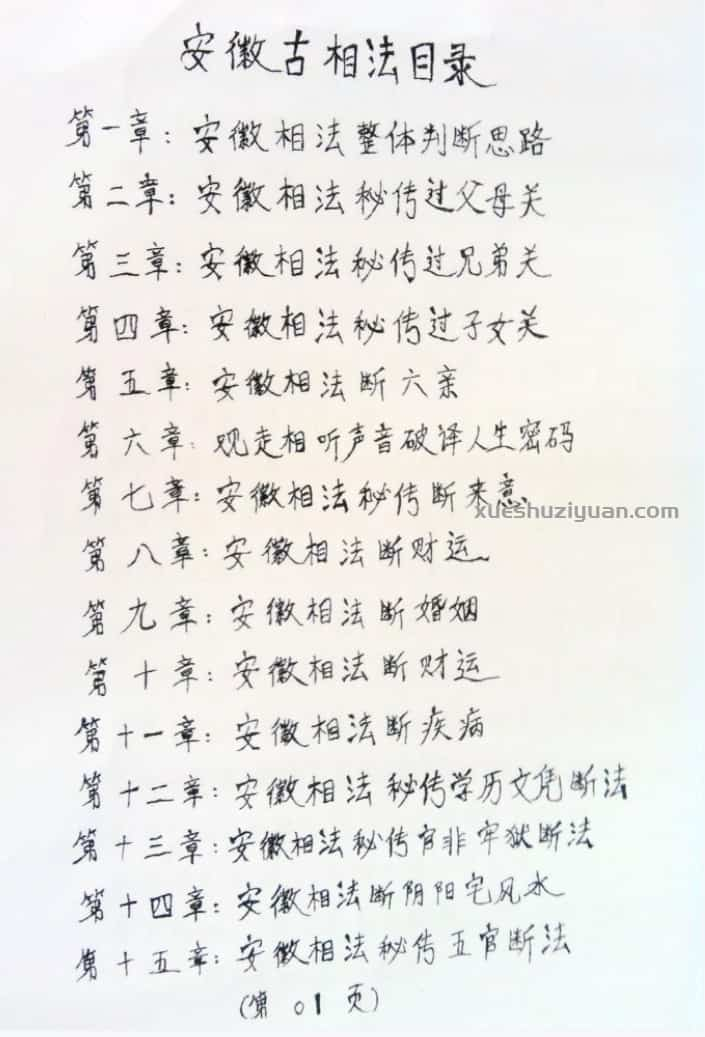 安徽古相法目录
第一章：安徽相法整体判断思路
第二章：安徽相法秘传过父母关
第三章：安徽相法秘传过兄弟关
第四章：安徽相法秘传过子女关
第五章：安徽相法断六亲
第六章：观走相听声音破译人生密码
第七章：安徽相法秘传断来意
xueshuziyuan.com
第八章：安徽相法断财运
第九章：安徽相法断婚姻
第十章：安徽相法断财运
第十一章：安徽相法断疾病
第十二章：安徽相法秘传学历文凭断法
第十三章：安徽相法秘传官非牢狱断法
第十四章：安徽相法断阴阳宅风水
第十五章：安徽相法秘传五官断法
(第 01 页)